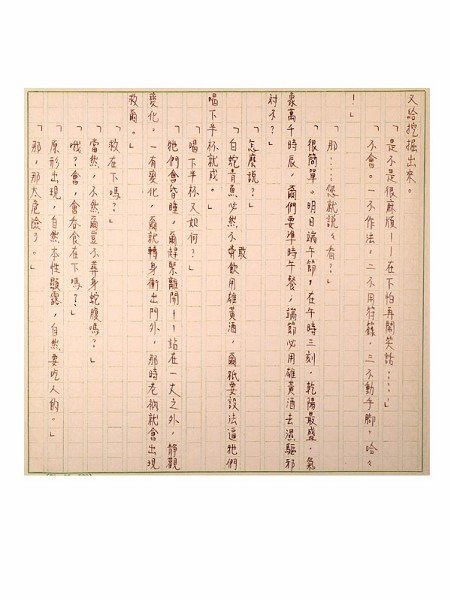 又給挖掘出來。
「是不是很麻煩——在下怕再鬧笑話……」
不會。一不作法，二不用符籙，三不動手腳，哈々
！」
「那……您就說々看？」
「很簡單。明日端午節，在午時三刻，乾陽最盛，氣
衰萬千時辰，爾們要準時午餐，端節必用雄黃酒去濕驅邪
對不？」
「怎麼說？」
「白蛇青魚必然不敢飲用雄黃酒，爾祇要設法逼牠們
喝下半杯就成。」
「喝下半杯又如何？」
「牠們會昏睡，爾趕緊離開——站在一丈之外，靜觀
變化，一有變化，爾就轉身衝出門外，那時老衲就會出現
救爾。」
「救在下嗎？」
「當然，不然爾豈不葬身蛇腹嗎？」
「哦？會，會吞食在下嗎？」
「原形出現，自然本性顯露，自然要吃人的。」
「那，那太危險了。」